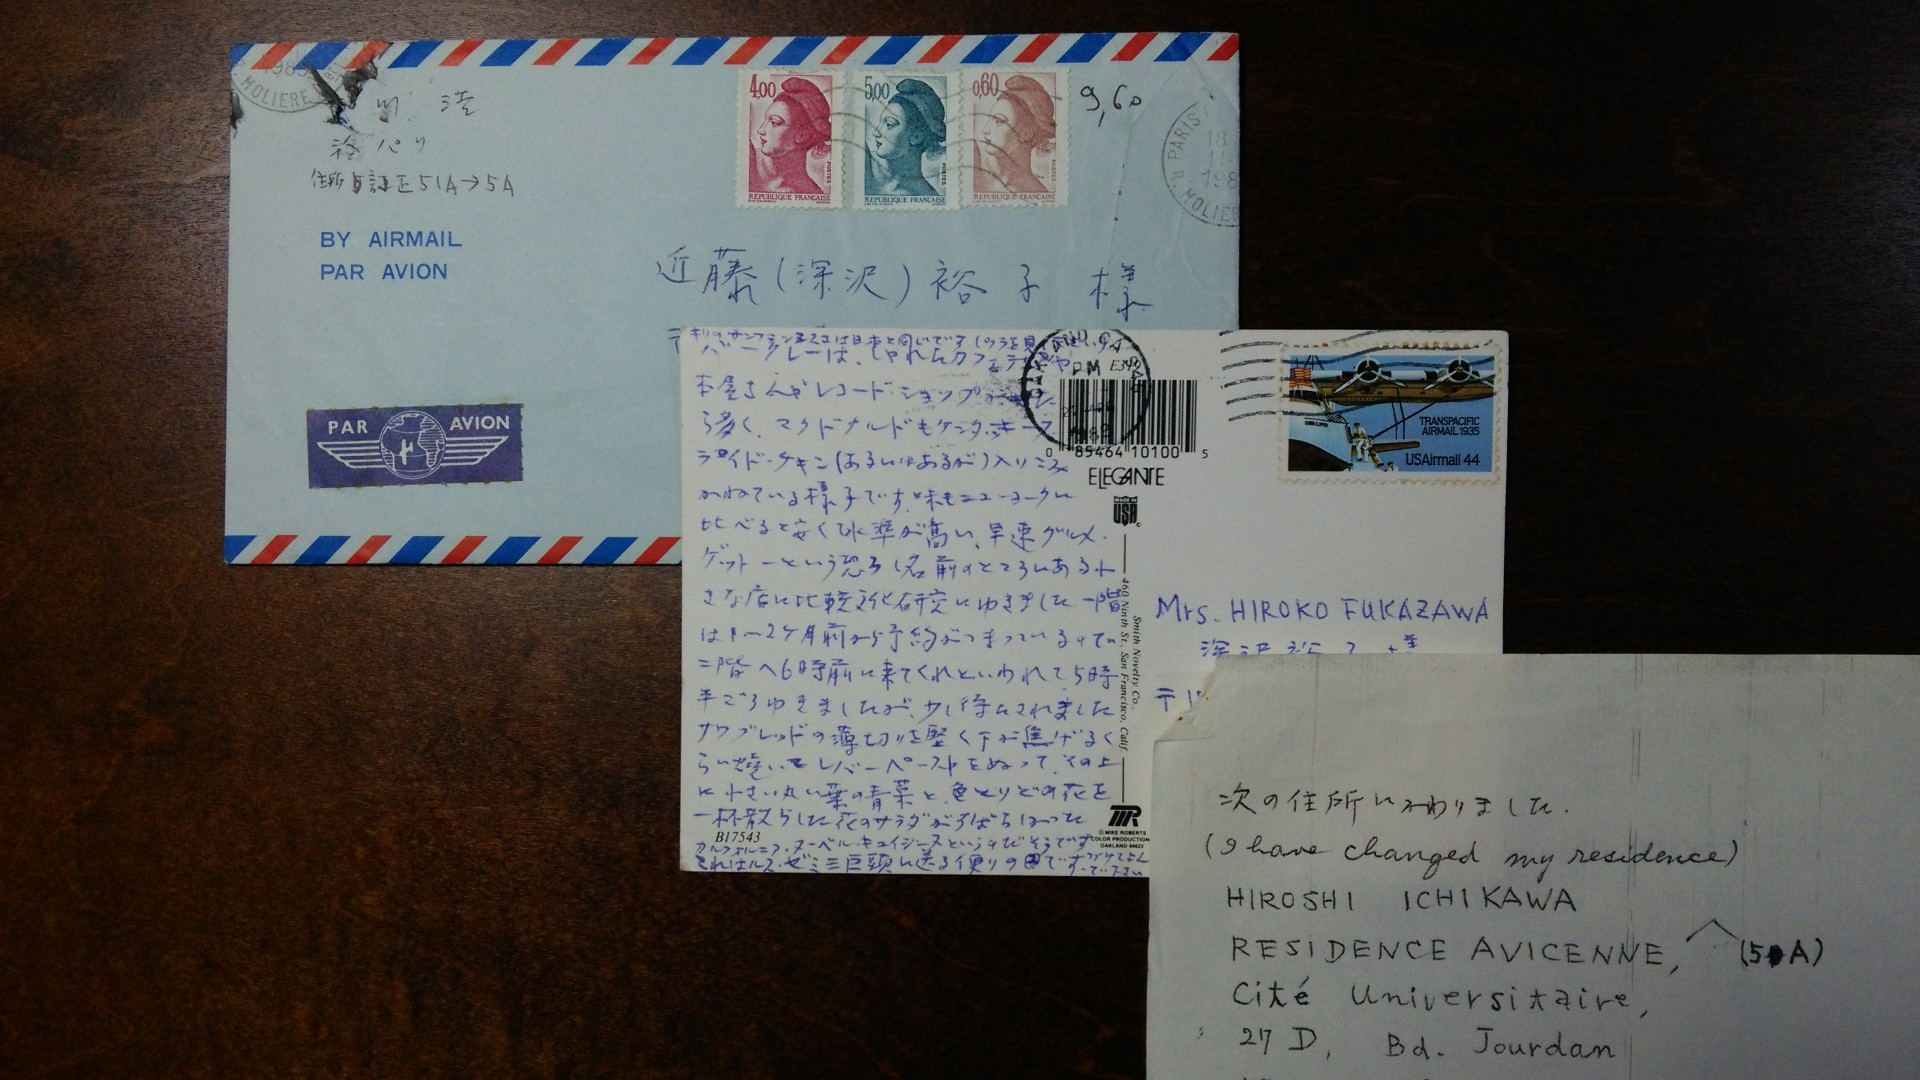 1985
R. MOLIERE
川 浩
於パリ
住所訂正 51A→5A
BY AIRMAIL
PAR AVION
PAR AVION
4,00
POSTES
REPUBLIQUE FRANÇAISE
5,00
POSTES
REPUBLIQUE FRANÇAISE
0,60
POSTES
REPUBLIQUE FRANÇAISE
9,60
PARIS
18
11
198
R. MOLIE
近藤(深沢)裕子 様
〒
バークレーは、しゃれたカフェテラスや
本屋さんやレコード・ショップが
多く、マクドナルドもケンタッキーフ
ライドチキン(あるにはあるが)入りこみ
かねている様子です。味もニューヨークに
比べると安く水準が高い、早速グルメ・
ゲットーという恐ろし名前のところにある小
さな店に比較文化研究にゆきました 一階
は1〜2ヶ月前から予約がつまっているので
二階へ6時前に来てくれといわれて5時
半ごろゆきましたが、少し待たされました
サワブレッドの薄切りを堅く下が焦げるく
らい焼いてレバーペーストをぬって、その上
に小さい丸い葉の青菜と、色とりどの花を
一杯散らした花のサラダがすばらしかった
カルフォルニア・ヌーベル・キュイジーヌというのだそうです
これはルス・ゼミ三巨頭に送る便りの
B17543
PM
E349
0 85464 10100 5
ELEGANTE
MADE IN
USA
Smith Novelty Co.
460 Ninth St. San Francisco, Calif.
© MIKE ROBERTS
COLOR PRODUCTION
OAKLAND 94623
TRANSPACIFIC
AIRMAIL 1935
USAirmail 44
Mrs. HIROKO FUKAZAWA
深沢裕子様
〒1
次の住所にかわりました.
(I have changed my residence)
HIROSHI ICHIKAWA
RESIDENCE AVICENNE, (5A)
Cité Universitaire,
27 D, Bd. Jourdan